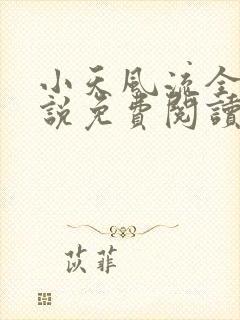 小天風流全
說免費閱讀
苡菲